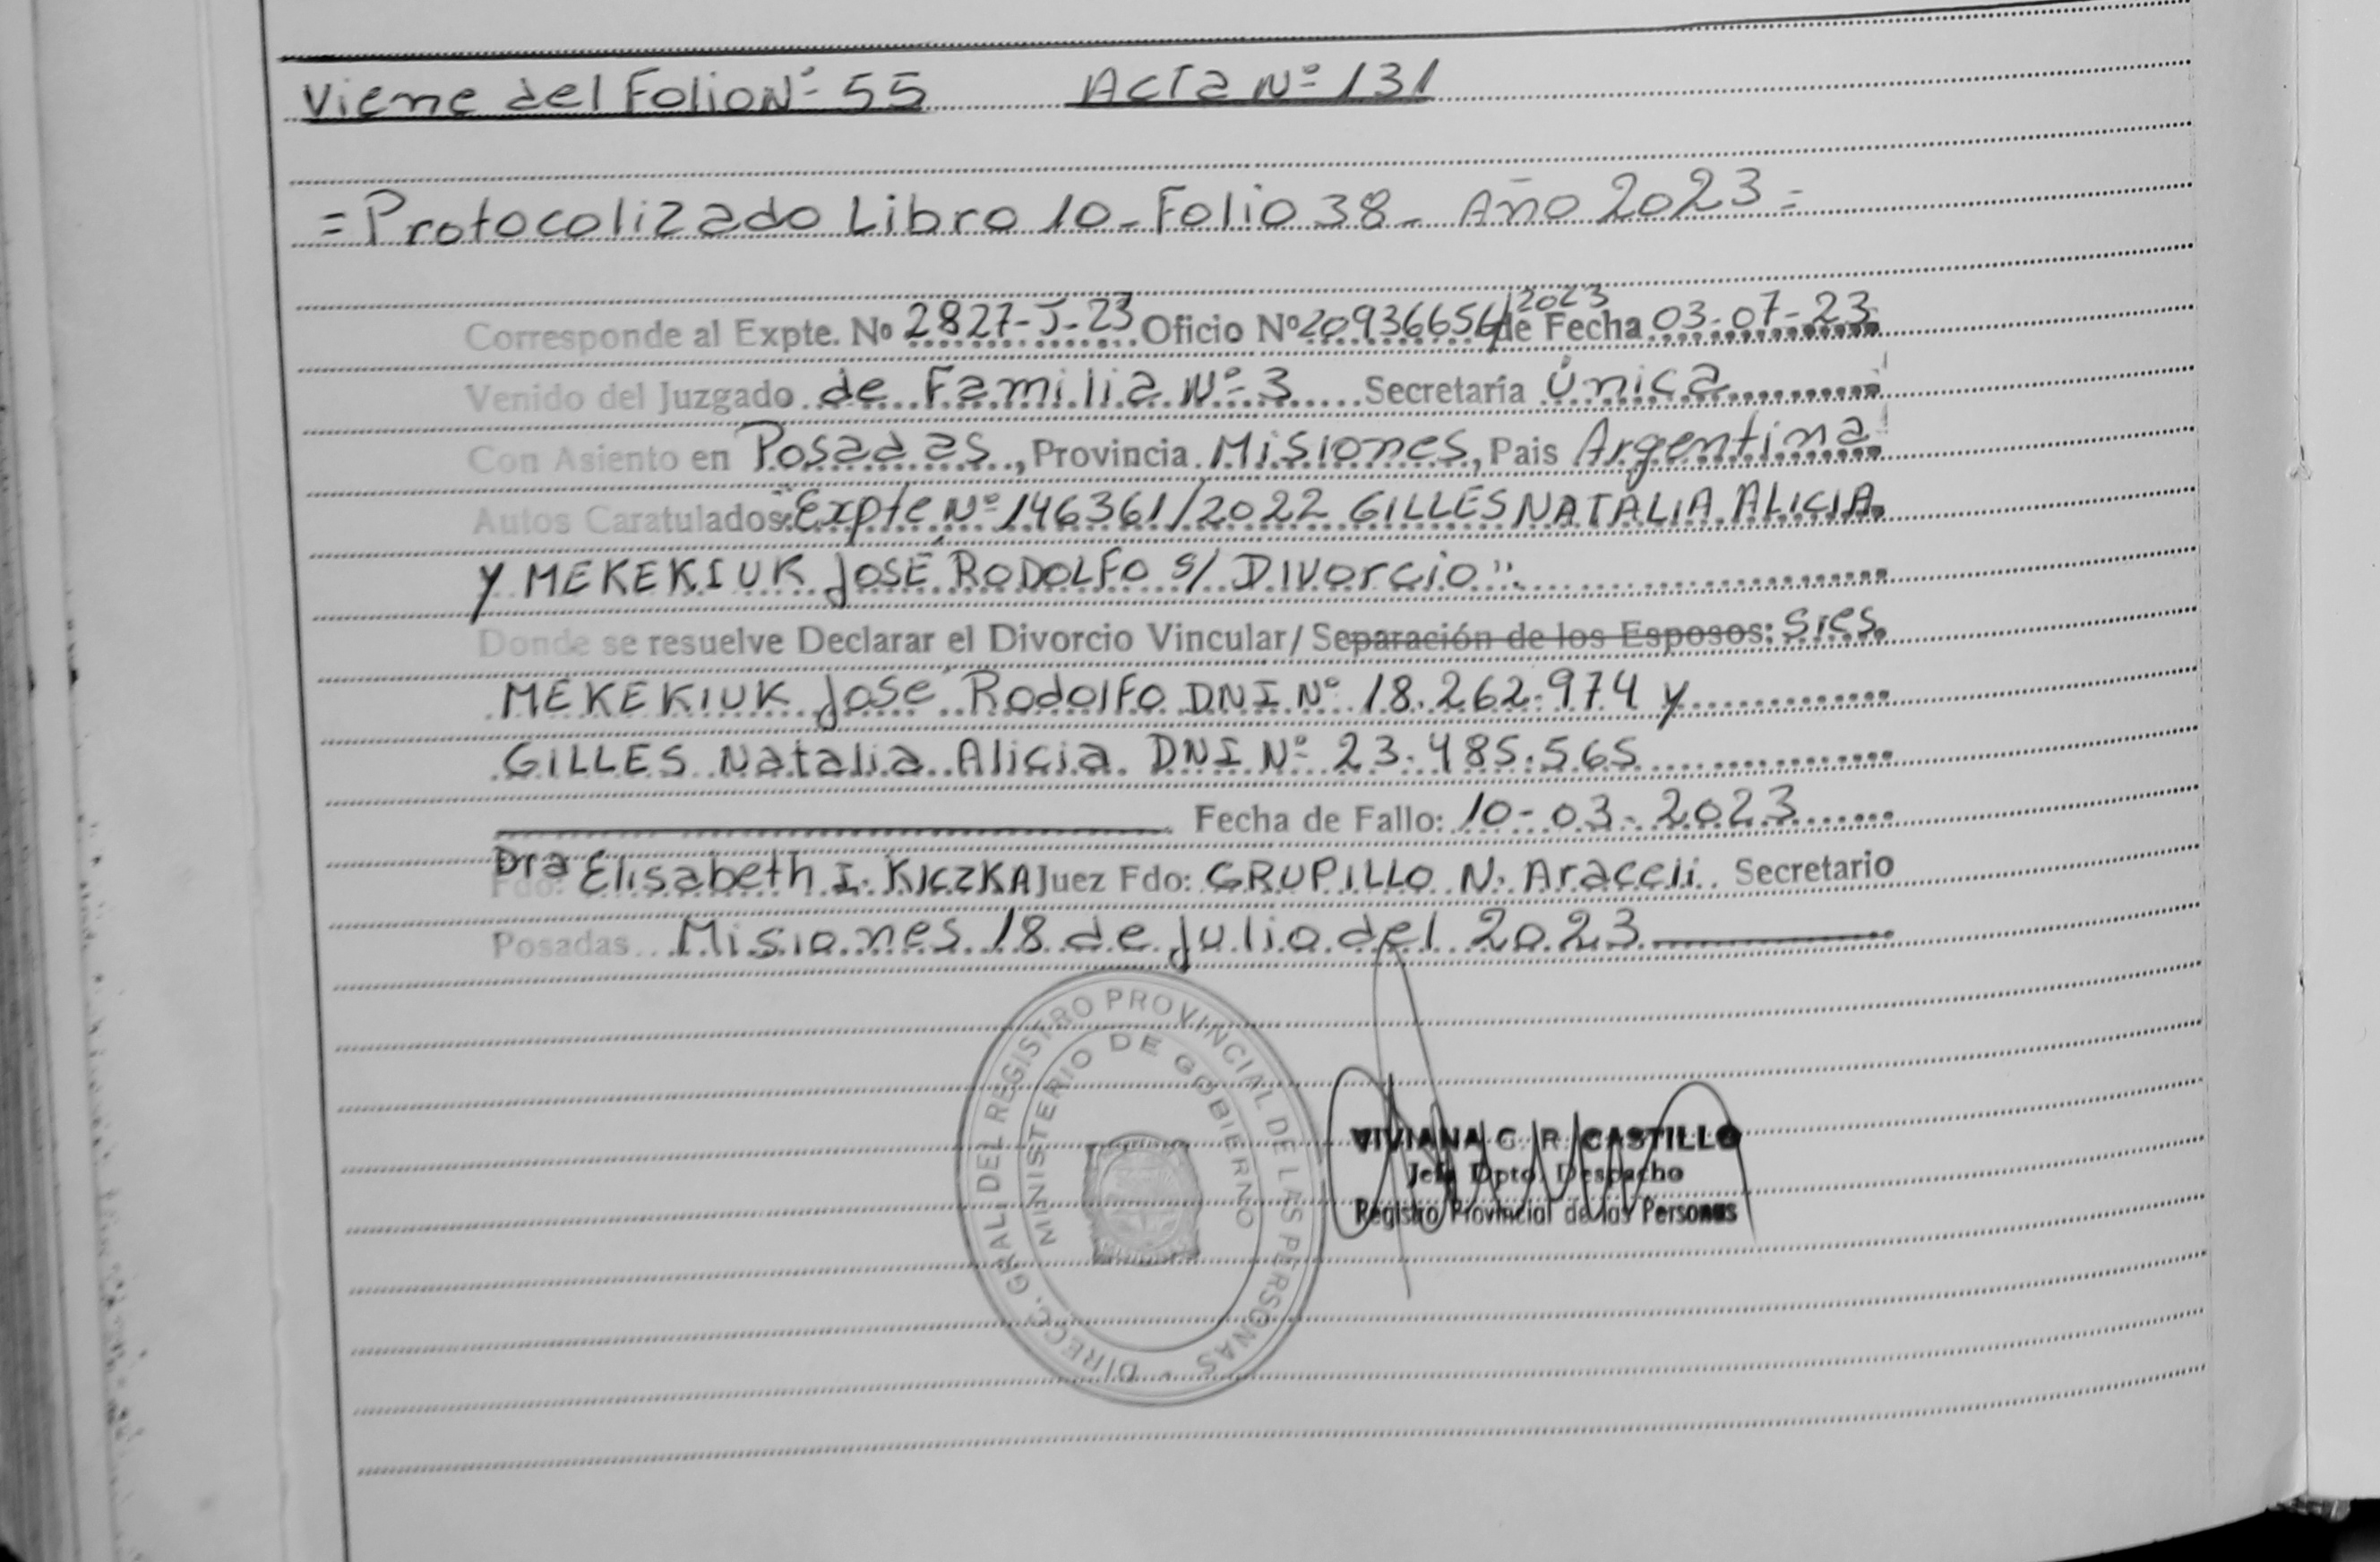 Viene del Folio Nº 55 Acta Nº 131
= Protocolizado Libro 10 - Folio 38 - Año 2023 =
Corresponde al Expte. Nº 2827-J-23 Oficio Nº 20936656/2023 de Fecha 03-07-23
Venido del Juzgado de Familia Nº 3 Secretaría Única
Con Asiento en Posadas, Provincia Misiones, Pais Argentina
Autos Caratulados: "Expte Nº 146361/2022 GILLES NATALIA ALICIA
y MEKEKIUK JOSÉ RODOLFO s/ Divorcio"
Donde se resuelve Declarar el Divorcio Vincular/ Separación de los Esposos: Sres.
MEKEKIUK José Rodolfo DNI Nº 18.262.974 y
GILLES Natalia Alicia DNI Nº 23.485.565
Fecha de Fallo: 10-03-2023
Fdo: Dra Elisabeth I. KICZKA Juez Fdo: GRUPILLO N. Araceli Secretario
Posadas Misiones 18 de Julio del 2023
DIRECC. GRAL. DEL REGISTRO PROVINCIAL DE LAS PERSONAS
MINISTERIO DE GOBIERNO
VIVIANA C. R. CASTILLO
Jefa Dpto. Despacho
Registro Provincial de las Personas